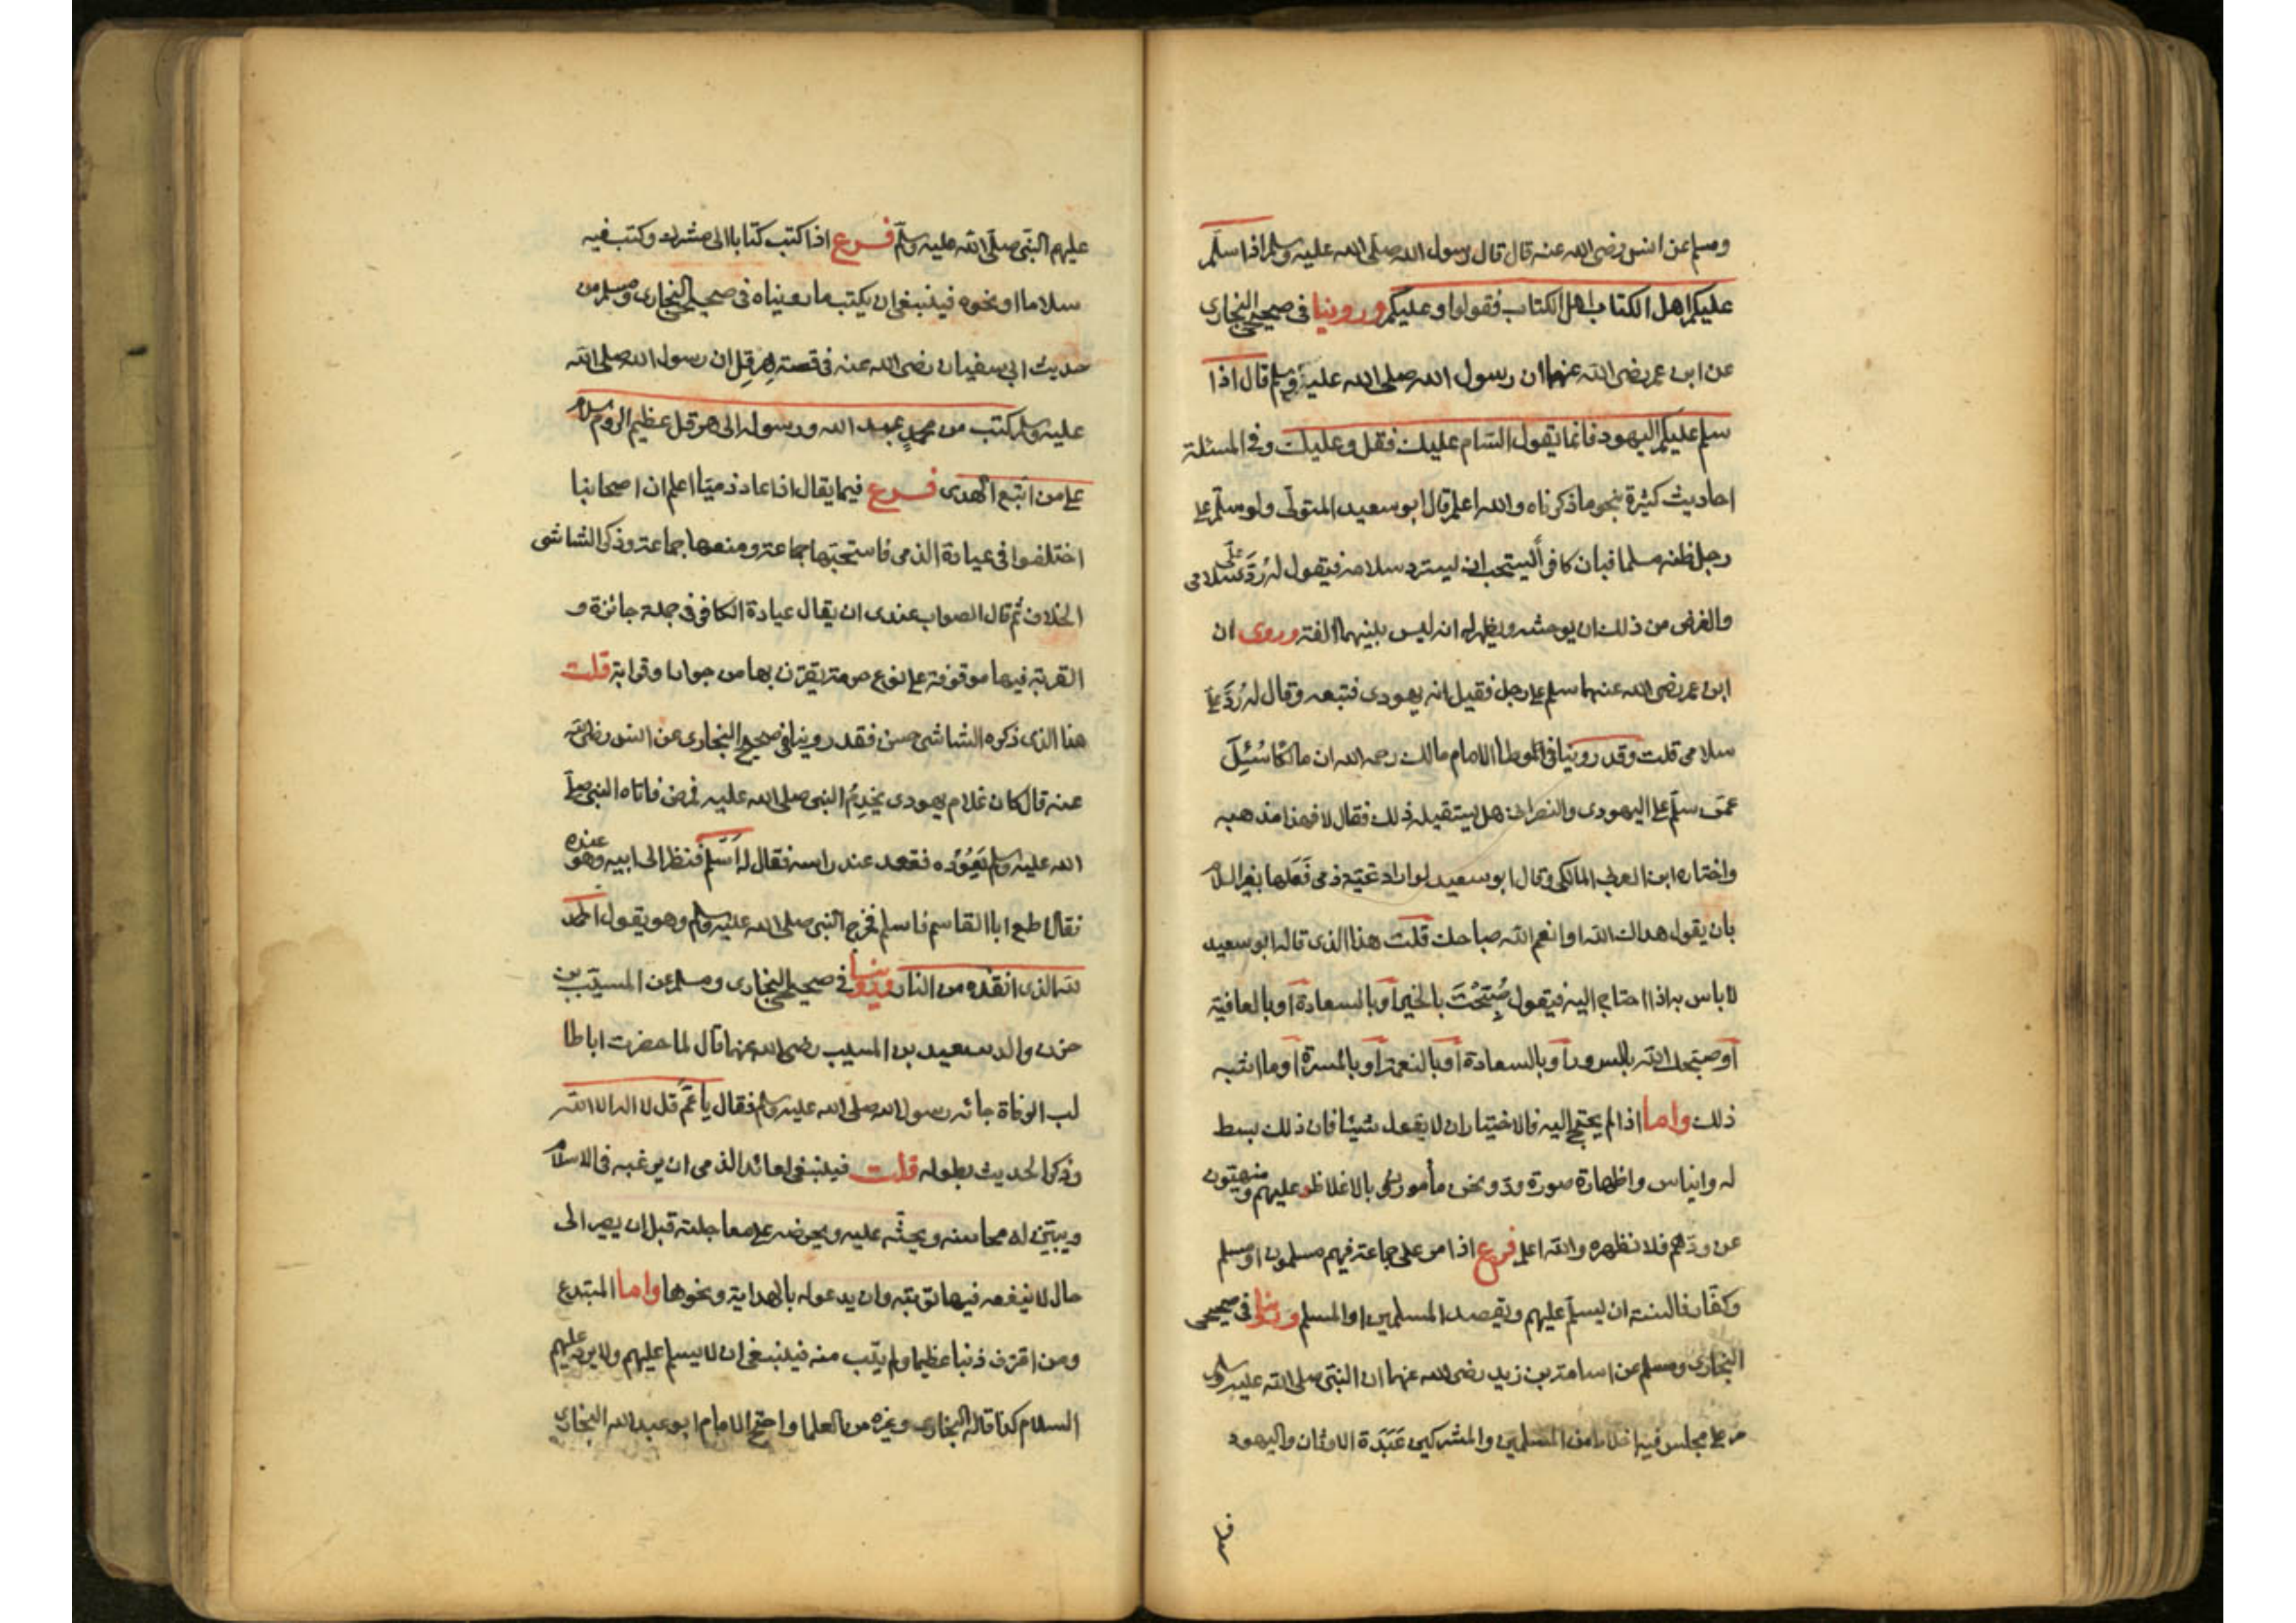 ومسلم عن انس رضى الله عنه قال قال رسول الله صلى الله عليه وسلم اذا سلم
عليكم اهل الكتاب اهل الكتاب فقولوا وعليكم وروينا فى صحيح البخارى
عن ابن عمر رضى الله عنهما ان رسول الله صلى الله عليه وسلم قال اذا
سلم عليكم اليهود فانما يقول السام عليك فقل وعليك وفى المسئلة
احاديث كثيرة بنحو ما ذكرناه والله اعلم قال ابو سعيد المتولّى ولو سلّم على
رجل ظنه مسلما فبان كافرا يستحب ان يسترد سلامه فيقول له رُدَّ علىّ سلامى
والغرض من ذلك ان يوحشه ويظهر له انه ليس بينهما الفة وروى ان
ابن عمر رضى الله عنهما سلم على رجل فقيل انه يهودى فتبعه وقال له رُدَّ علىّ
سلامى قلت وقد روينا فى الموطا الامام مالك رحمه الله ان مالكا سُئِلَ
عمّن سلّم على اليهودى والنصرانى هل يستقيله ذلك فقال لا فهذا مذهبه
واختاره ابن العربى المالكى وقال ابو سعيد لو اراد تحية ذمى فَعَلها بغير السلام
بان يقول هداك الله او انعم الله صباحك قلت هذا الذى قاله ابو سعيد
لا باس به اذا احتاج اليه فيقول صُبِّحْتَ بالخير او بالسعادة او بالعافية
او صبّحك الله بالسرور او بالسعادة او بالنعمة او بالمسرة او ما اشبه
ذلك واما اذا لم يحتج اليه فالاختيار ان لا يقول شيئا فان ذلك بسط
له وايناس واظهارة صورة ودّ ونحن مأمورون بالاغلاظ عليهم ومنهيّون
عن ودّهم فلا نظهره والله اعلم فرع اذا مر على جماعة فيهم مسلمون او مسلم
وكفّار فالسنة ان يسلّم عليهم ويقصد المسلمين او المسلم وروينا فى صحيحى
البخارى ومسلم عن اسامة بن زيد رضى الله عنهما ان النبّى صلى الله عليه وسلم
مر على مجلس فيه اخلاط من المسلمين والمشركين عَبَدَة الاوثان واليهود
عليهم النبّى صلّى الله عليه وسلّم فرع اذا كتب كتابا الى مشرك وكتب فيه
سلاما او نحوه فينبغى ان يكتب ما روينا‌ه فى صحيحى البخارى ومسلم من
حديث ابى سفيان رضى الله عنه فى قصة هِرَقِل ان رسول الله صلى الله
عليه وسلم كتب من محمدٍ عبد الله ورسوله الى هرقل عظيم الروم سلام
على من اتّبع الهدى فرع فيما يقال اذا عاد ذميّا اعلم ان اصحابنا
اختلفوا فى عيادة الذمى فاستحبّها جماعة ومنعها جماعة وذكر الشاشى
الخلاف ثم قال الصواب عندى ان يقال عيادة الكافر فى جملة جائزة و
القربة فيها موقوفة على نوع حرمة يقترن بها من جوار او قرابة قلت
هذا الذى ذكره الشاشى حسن فقد روينا فى صحيح البخارى عن انس رضى الله
عنه قال كان غلام يهودى يخدِمُ النبى صلى الله عليه فمرض فاتاه النبى صلى
الله عليه وسلم يَعُوْدُه فقعد عند راسه فقال له اَسْلِم فنظر الى ابيه وهو عنده
فقال اطع ابا القاسم فاسلم فخرج النبى صلى الله عليه وسلم وهو يقول الحمد
لله الذى انقذه من النار وروينا فى صحيحى البخارى ومسلم عن المسيّب بن
حزن والد سعيد بن المسيب رضى الله عنهما قال لما حضرت ابا طا
لب الوفاة جائه رسول الله صلى الله عليه وسلم فقال يا عَمِّ قل لا اله الا الله
وذكر الحديث بطوله قلت فينبغى لعائد الذمى ان يرغبه فى الاسلام
ويبيّن له محاسنه ويحثّه عليه ويحرضه على معاجلته قبل ان يصير الى
حال لا ينفعه فيها توبته وان يدعو له بالهداية ونحوها واما المبتدع
ومن اقترف ذنبا عظيما ولم يتب منه فينبغى ان لا يسلم عليهم ولا يرد عليهم
السلام كذا قاله البخارى وغيره من العلما واحتج الامام ابو عبد الله البخارى